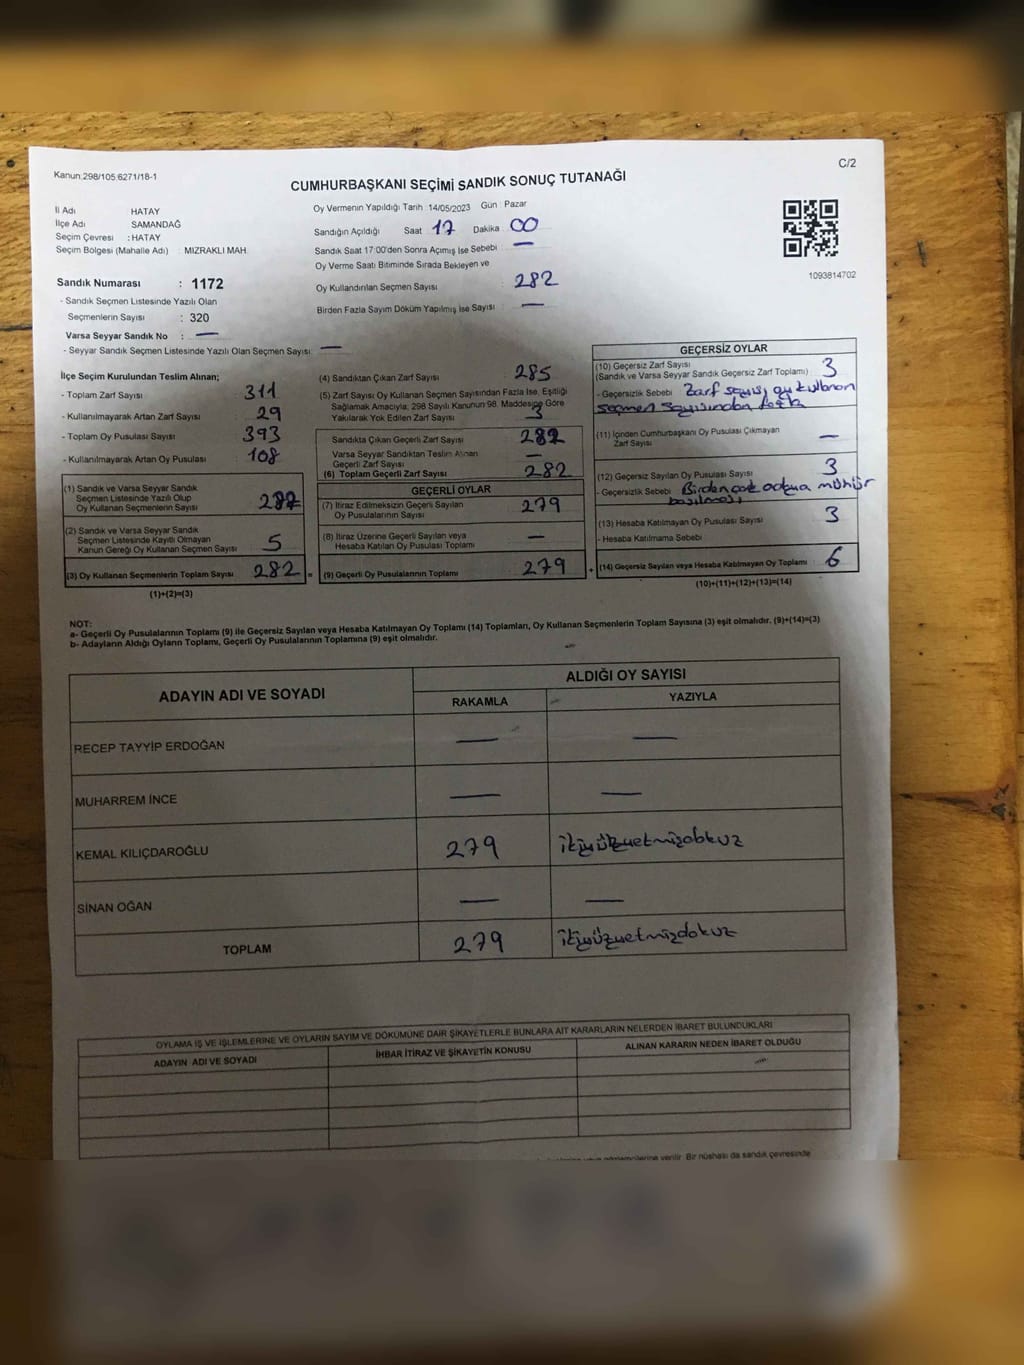 Kanun:298/105 6271/18-1
C/2
CUMHURBAŞKANI SEÇİMİ SANDIK SONUÇ TUTANAĞI
İl Adı HATAY
İlçe Adı SAMANDAĞ
Seçim Çevresi : HATAY
Seçim Bölgesi (Mahalle Adı) : MIZRAKLI MAH.
Sandık Numarası : 1172
- Sandık Seçmen Listesinde Yazılı Olan
Seçmenlerin Sayısı : 320
Varsa Seyyar Sandık No : —
- Seyyar Sandık Seçmen Listesinde Yazılı Olan Seçmen Sayısı: —
Oy Vermenin Yapıldığı Tarih 14/05/2023 Gün : Pazar
Sandığın Açıldığı Saat 17 Dakika 00
Sandık Saat 17:00'den Sonra Açımış İse Sebebi —
Oy Verme Saati Bitiminde Sırada Bekleyen ve
Oy Kullandırılan Seçmen Sayısı : 282
Birden Fazla Sayım Döküm Yapılmış İse Sayısı : —
1093814702
İlçe Seçim Kurulundan Teslim Alınan;
- Toplam Zarf Sayısı : 311
- Kullanılmayarak Artan Zarf Sayısı : 29
- Toplam Oy Pusulası Sayısı : 393
- Kullanılmayarak Artan Oy Pusulası : 108
(1) Sandık ve Varsa Seyyar Sandık
Seçmen Listesinde Yazılı Olup
Oy Kullanan Seçmenlerin Sayısı :
(2) Sandık ve Varsa Seyyar Sandık
Seçmen Listesinde Kayıtlı Olmayan
Kanun Gereği Oy Kullanan Seçmen Sayısı : 5
(3) Oy Kullanan Seçmenlerin Toplam Sayısı : 282 =
(1)+(2)=(3)
(4) Sandıktan Çıkan Zarf Sayısı : 285
(5) Zarf Sayısı Oy Kullanan Seçmen Sayısından Fazla İse, Eşitliği
Sağlamak Amacıyla, 298 Sayılı Kanunun 98. Maddesine Göre
Yakılarak Yok Edilen Zarf Sayısı : 3
Sandıkta Çıkan Geçerli Zarf Sayısı : 282
Varsa Seyyar Sandıktan Teslim Alınan
Geçerli Zarf Sayısı : —
(6) Toplam Geçerli Zarf Sayısı : 282
GEÇERLİ OYLAR
(7) İtiraz Edilmeksizin Geçerli Sayılan
Oy Pusulalarının Sayısı : 279
(8) İtiraz Üzerine Geçerli Sayılan veya
Hesaba Katılan Oy Pusulası Toplamı : —
(9) Geçerli Oy Pusulalarının Toplamı : 279 +
GEÇERSİZ OYLAR
(10) Geçersiz Zarf Sayısı
(Sandık ve Varsa Seyyar Sandık Geçersiz Zarf Toplamı) : 3
- Geçersizlik Sebebi : Zarf sayısı, oy kullanan
seçmen sayısından fazla
(11) İçinden Cumhurbaşkanı Oy Pusulası Çıkmayan
Zarf Sayısı : —
(12) Geçersiz Sayılan Oy Pusulası Sayısı : 3
- Geçersizlik Sebebi : Birden çok adaya mühür
basılması
(13) Hesaba Katılmayan Oy Pusulası Sayısı : 3
- Hesaba Katılmama Sebebi :
(14) Geçersiz Sayılan veya Hesaba Katılmayan Oy Toplamı : 6
(10)+(11)+(12)+(13)=(14)
NOT:
a- Geçerli Oy Pusulalarının Toplamı (9) ile Geçersiz Sayılan veya Hesaba Katılmayan Oy Toplamı (14) Toplamları, Oy Kullanan Seçmenlerin Toplam Sayısına (3) eşit olmalıdır. (9)+(14)=(3)
b- Adayların Aldığı Oyların Toplamı, Geçerli Oy Pusulalarının Toplamına (9) eşit olmalıdır.
ADAYIN ADI VE SOYADI ALDIĞI OY SAYISI
RAKAMLA YAZIYLA
RECEP TAYYİP ERDOĞAN — —
MUHARREM İNCE — —
KEMAL KILIÇDAROĞLU 279 ikiyüzyetmişdokuz
SİNAN OĞAN — —
TOPLAM 279 ikiyüzyetmişdokuz
OYLAMA İŞ VE İŞLEMLERİNE VE OYLARIN SAYIM VE DÖKÜMÜNE DAİR ŞİKAYETLERLE BUNLARA AİT KARARLARIN NELERDEN İBARET BULUNDUKLARI
ADAYIN ADI VE SOYADI İHBAR İTİRAZ VE ŞİKAYETİN KONUSU ALINAN KARARIN NEDEN İBARET OLDUĞU
verilir. Bir nüshası da sandık çevresinde